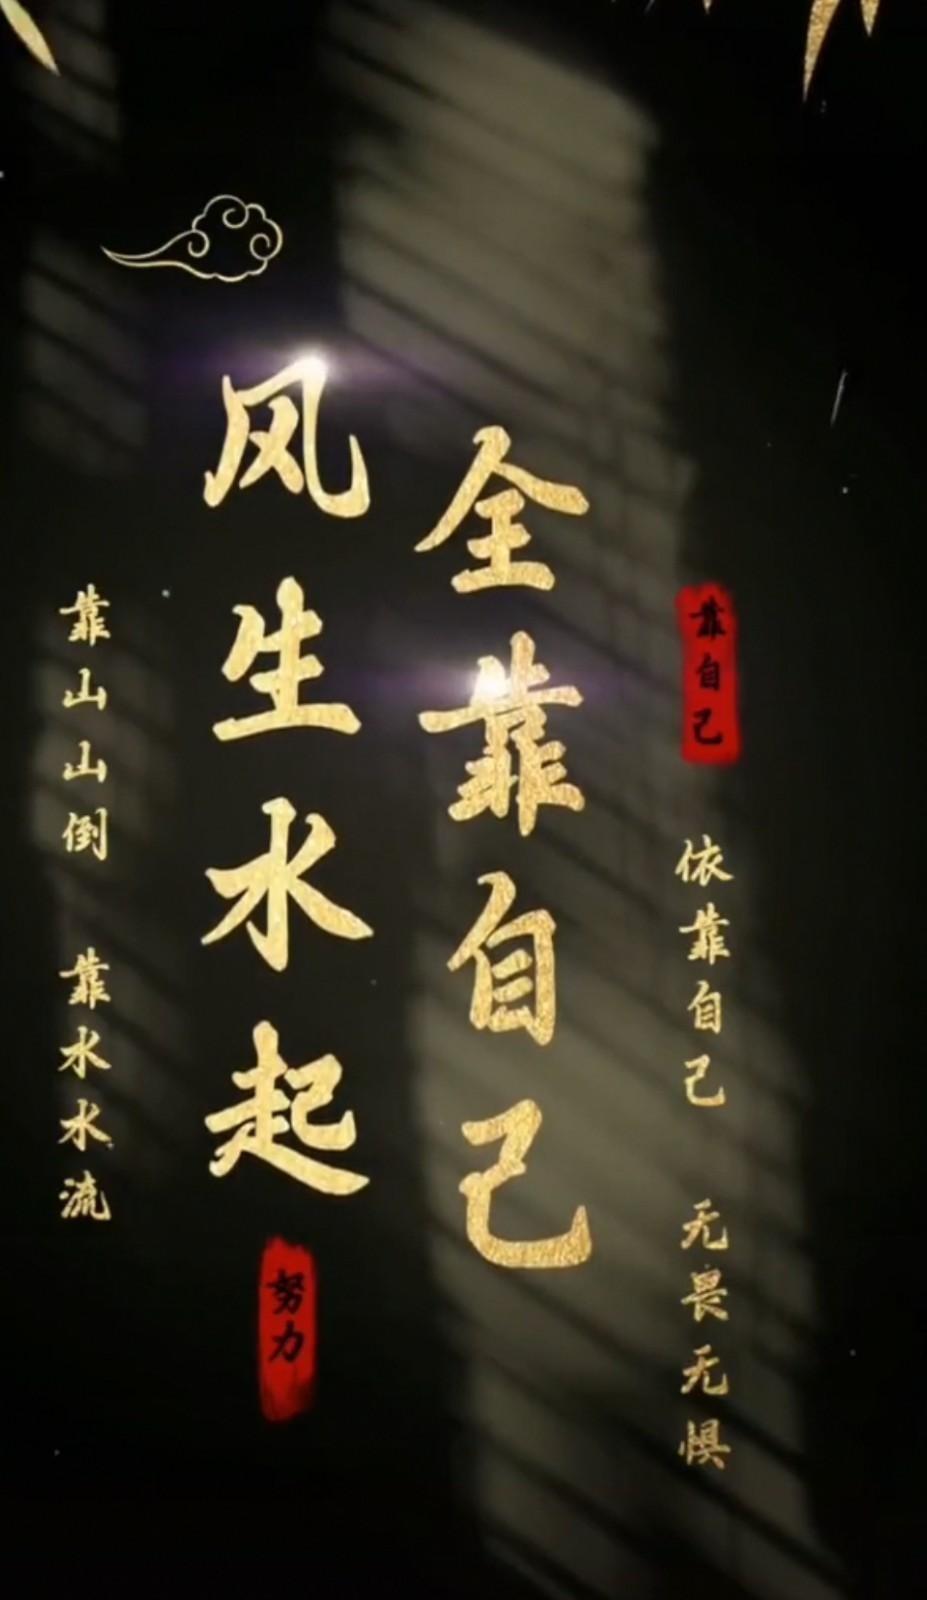 靠自己
依靠自己 无畏无惧
全靠自己
风生水起
努力
靠山山倒 靠水水流